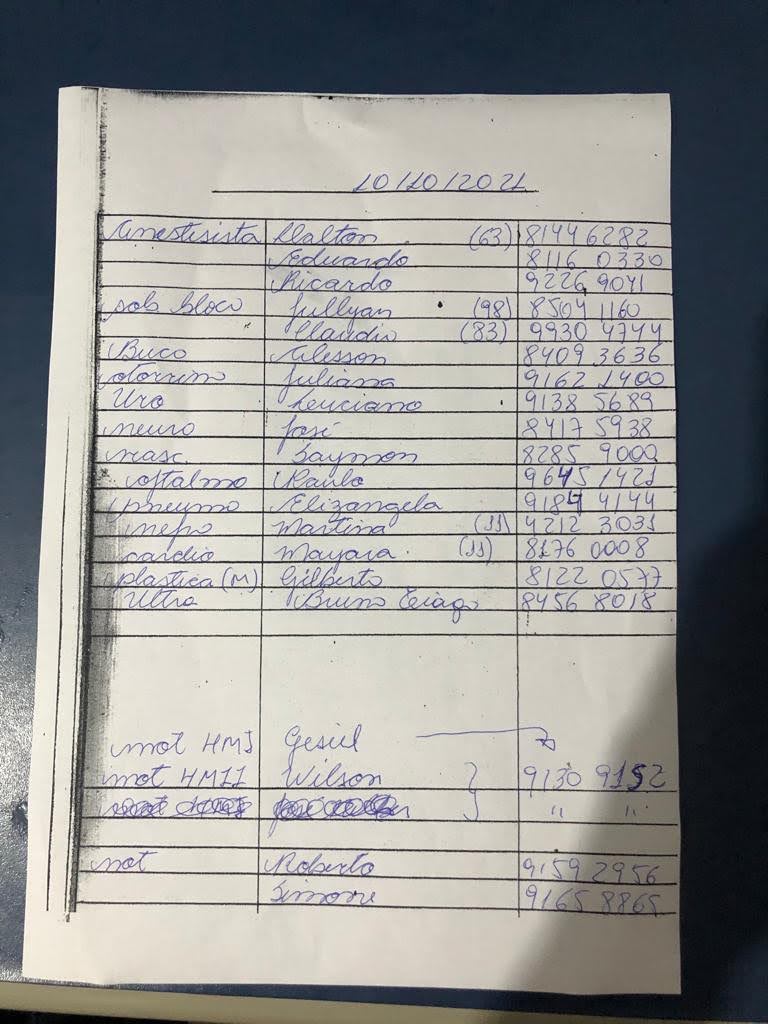 10/10/2021
Anestisista Dalton (63) 8144 6282
Eduardo 8116 0330
Ricardo 9226 9041
sob bloco Jullyan (98) 8504 1160
Claudio (83) 9930 4744
Buco Alesson 8409 3636
otorrino Juliana 9162 1400
Uro Luciano 9138 5689
neuro José 8417 5938
vasc. Saymon 8285 9000
oftalmo Paulo 9645 1421
pneumo Elizangela 9184 4144
nefro Martina (11) 4212 3031
cardio Mayara (11) 8176 0008
plastica (M) Gilberto 8122 0577
Ultra Bruno Tiago 8456 8018
mot HMI Gesiel
mot HMII Wilson 9130 9152
" "
mot Roberto 9159 2956
Simone 9165 8865